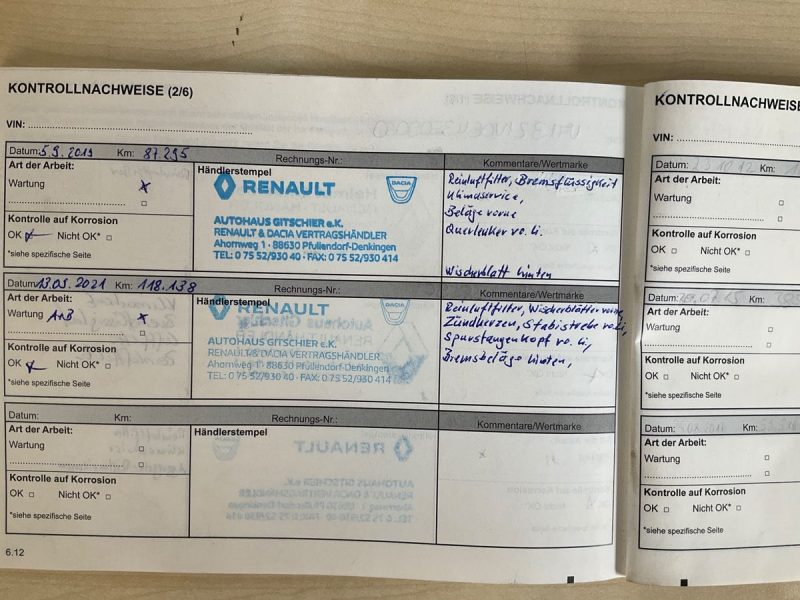 KONTROLLNACHWEISE (2/6)
VIN:
Datum: 5.9.2019 Km: 87.295 Rechnungs-Nr.: Kommentare/Wertmarke
Art der Arbeit:
Wartung x
Kontrolle auf Korrosion
OK Nicht OK*
*siehe spezifische Seite
Händlerstempel
RENAULT
DACIA
AUTOHAUS GITSCHIER e.K.
RENAULT & DACIA VERTRAGSHÄNDLER
Ahornweg 1 · 88630 Pfullendorf-Denkingen
TEL: 0 75 52/930 40 · FAX: 0 75 52/930 414
Reinluftfilter, Bremsflüssigkeit
Klimaservice,
Beläge vorne
Querlenker vo. li.
Wischerblatt hinten
Datum: 13.09.2021 Km: 118.138 Rechnungs-Nr.: Kommentare/Wertmarke
Art der Arbeit:
Wartung A+B x
Kontrolle auf Korrosion
OK Nicht OK*
*siehe spezifische Seite
Händlerstempel
RENAULT
DACIA
AUTOHAUS GITSCHIER e.K.
RENAULT & DACIA VERTRAGSHÄNDLER
Ahornweg 1 · 88630 Pfullendorf-Denkingen
TEL: 0 75 52/930 40 · FAX: 0 75 52/930 414
Reinluftfilter, Wischerblätter vorne,
Zündkerzen, Stabistrebe vo. li,
Spurstangenkopf vo. li,
Bremsbeläge hinten,
Datum: Km: Rechnungs-Nr.: Kommentare/Wertmarke
Art der Arbeit:
Wartung
Kontrolle auf Korrosion
OK Nicht OK*
*siehe spezifische Seite
Händlerstempel
6.12
KONTROLLNACHWEISE
VIN:
Datum:
Art der Arbeit:
Wartung
Kontrolle auf Korrosion
OK Nicht OK*
*siehe spezifische Seite
Datum:
Art der Arbeit:
Wartung
Kontrolle auf Korrosion
OK Nicht OK*
*siehe spezifische Seite
Datum: Km:
Art der Arbeit:
Wartung
Kontrolle auf Korrosion
OK Nicht OK*
*siehe spezifische Seite